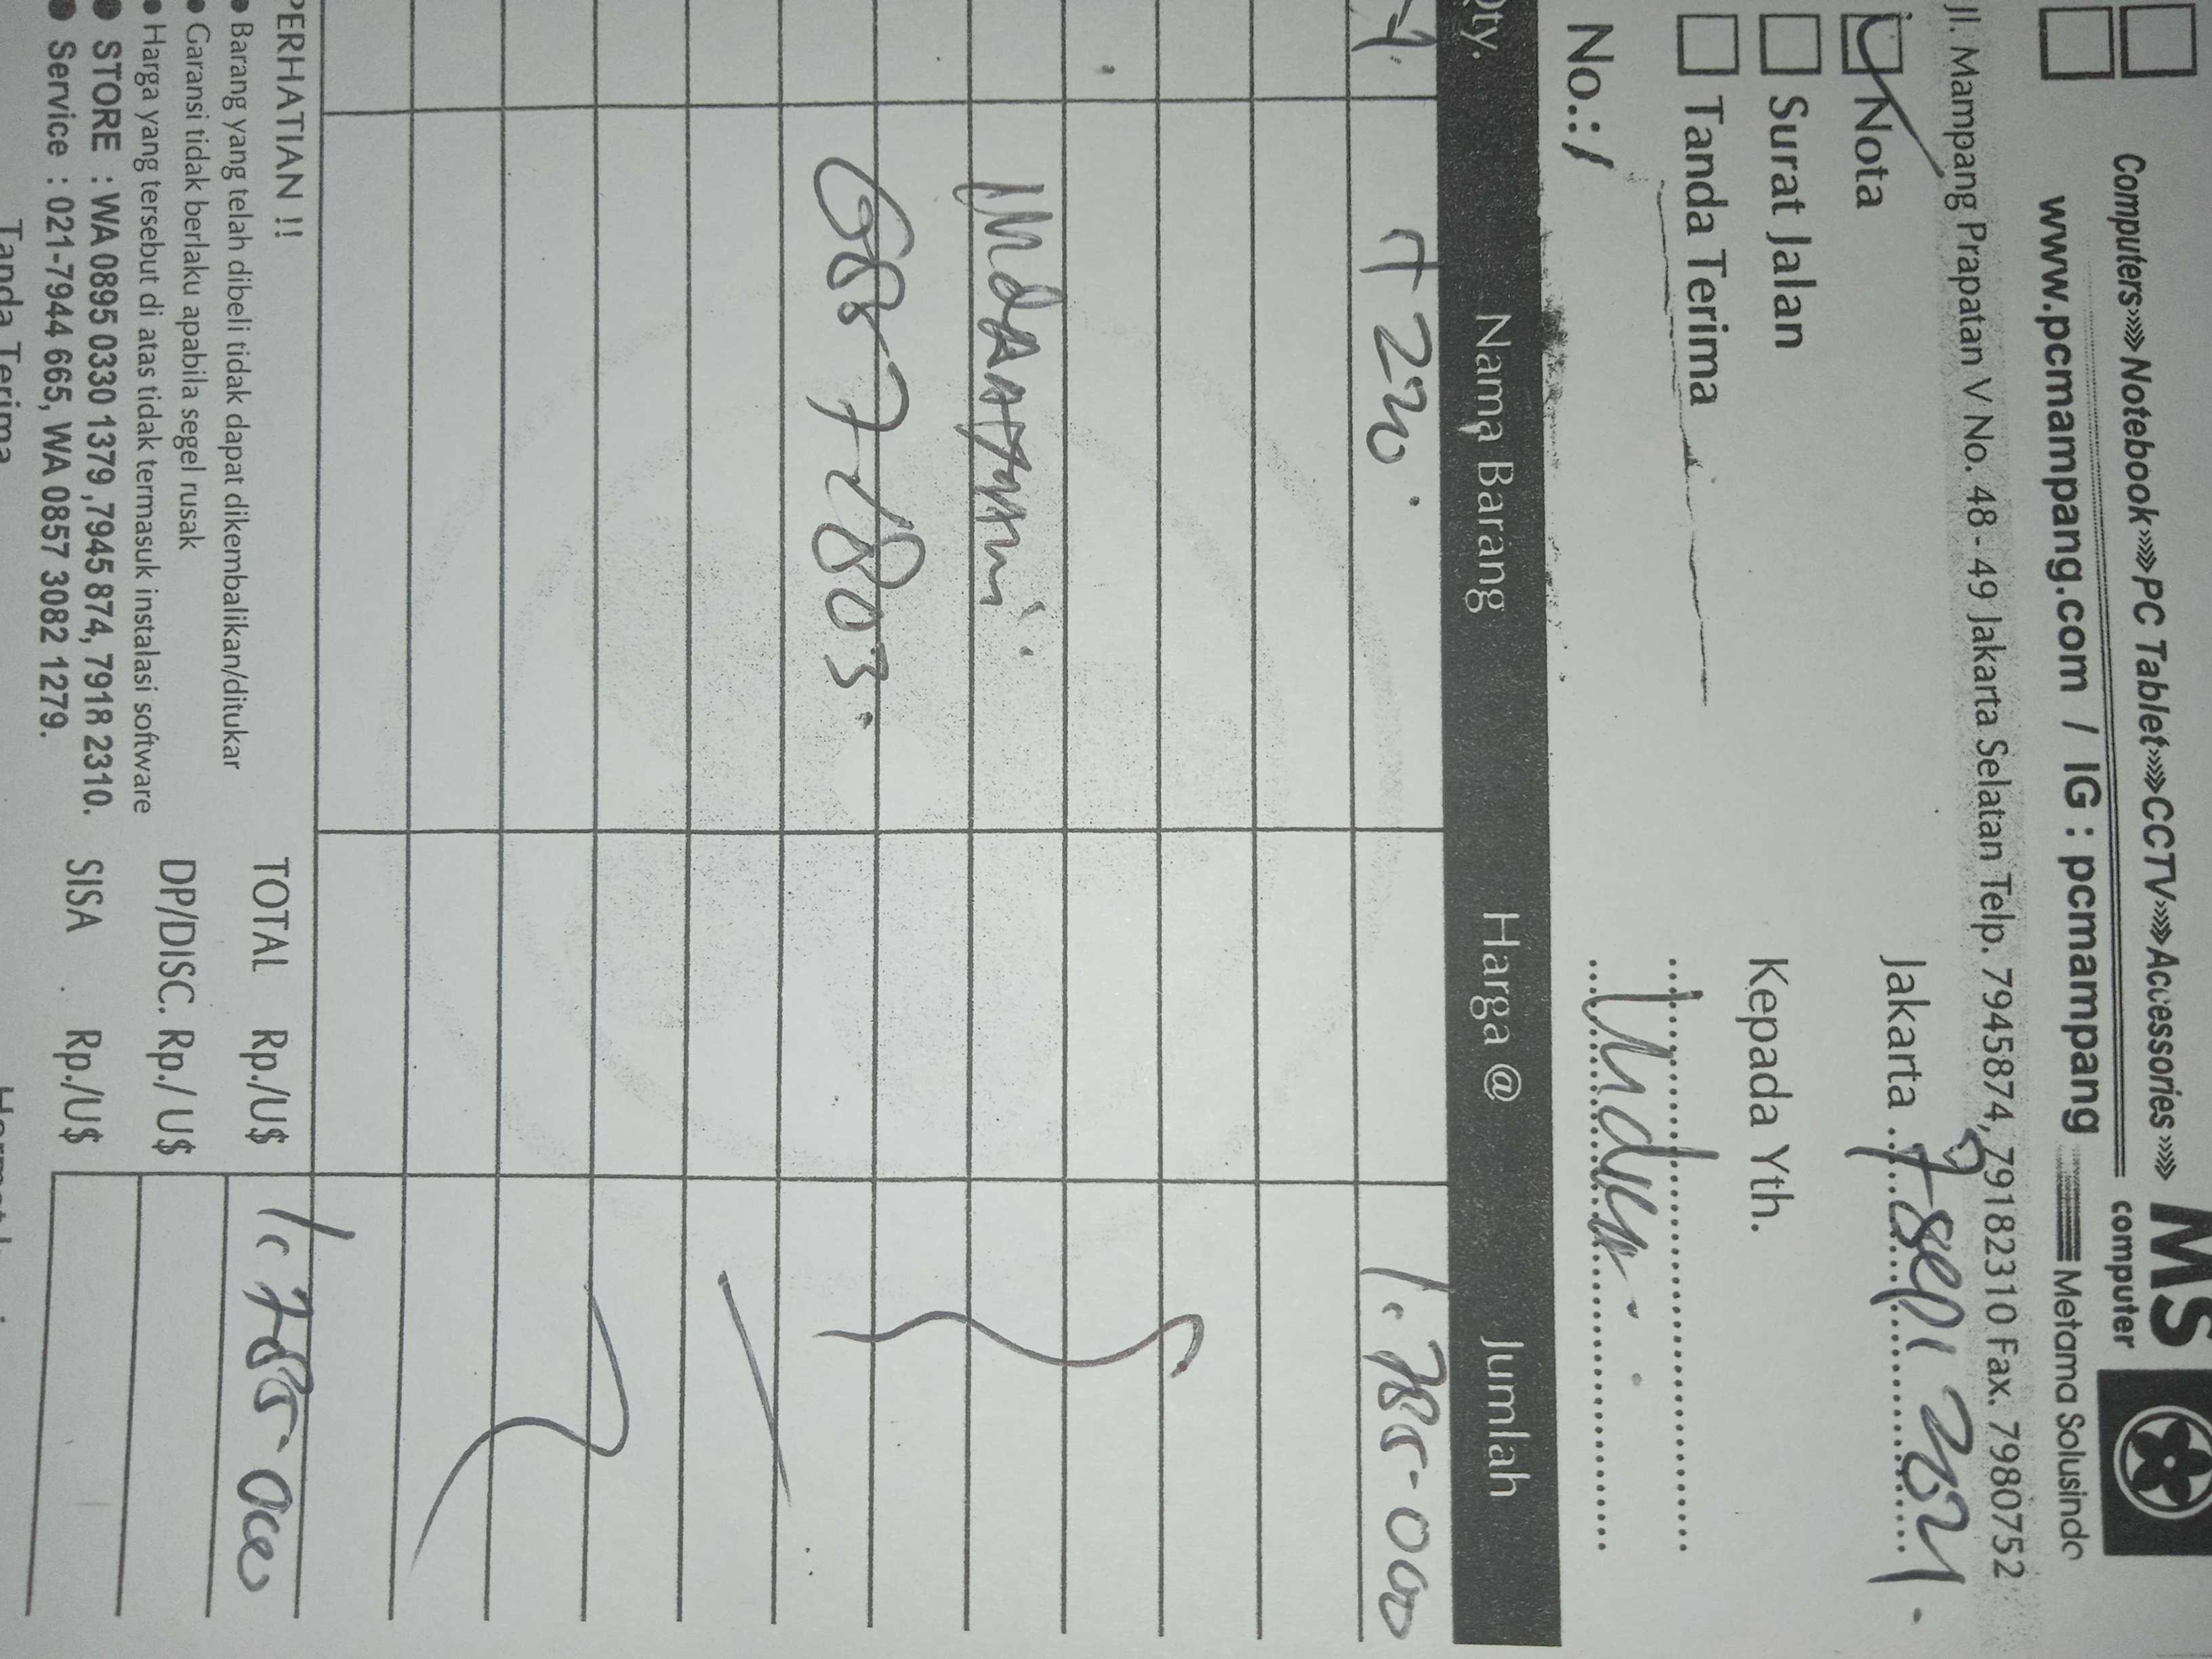 Computers»»»Notebook»»»PC Tablet»»»CCTV»»»Accessories»»»
MS
computer
www.pcmampang.com / IG : pcmampang
Metama Solusindo
Jl. Mampang Prapatan V No. 48 - 49 Jakarta Selatan Telp. 7945874, 79182310 Fax. 7980752
Nota
Jakarta 7 Sept 2021.
Surat Jalan
Kepada Yth.
Tanda Terima
No.:
Qty. Nama Barang Harga @ Jumlah
T 220. 1.785.000
TOTAL Rp./US$ 1.785.000
DP/DISC. Rp./ U$
SISA Rp./U$
PERHATIAN !!
• Barang yang telah dibeli tidak dapat dikembalikan/ditukar
• Garansi tidak berlaku apabila segel rusak
• Harga yang tersebut di atas tidak termasuk instalasi software
• STORE : WA 0895 0330 1379 ,7945 874, 7918 2310.
• Service : 021-7944 665, WA 0857 3082 1279.
Tanda Terima